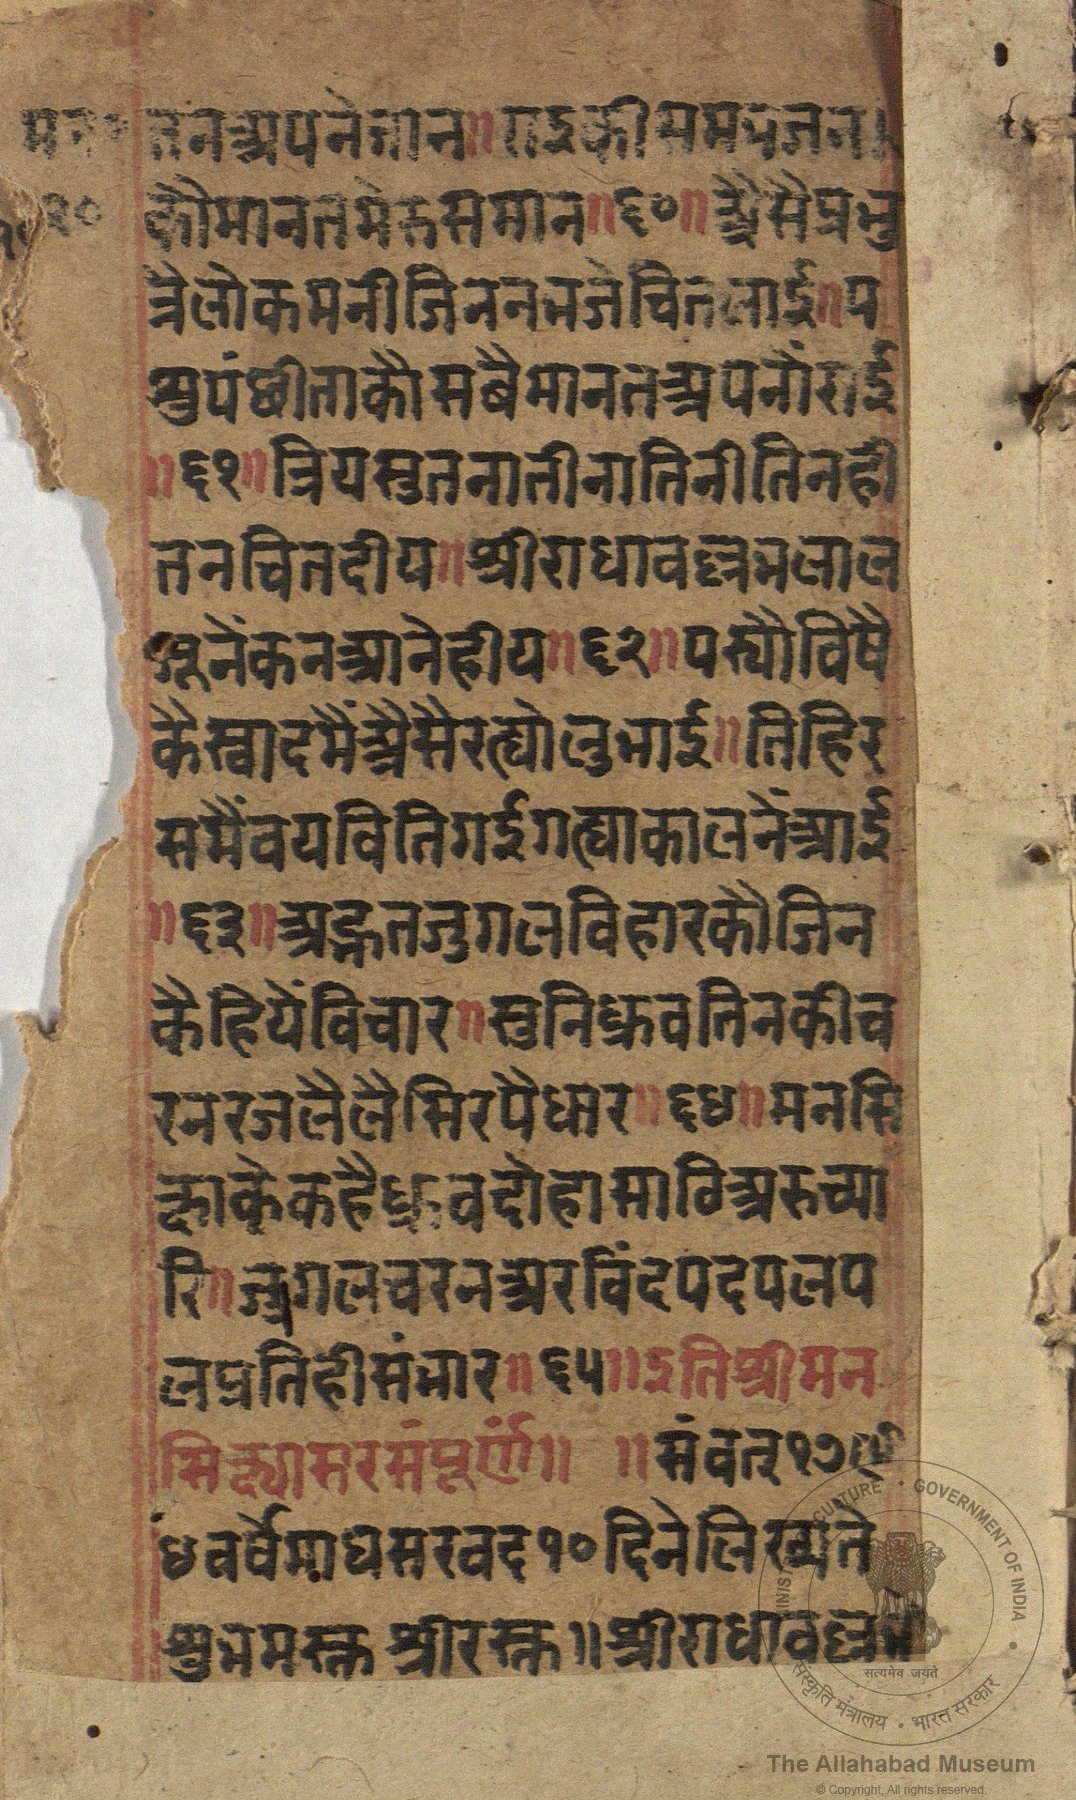 तनअपनेजान॥राईकीसमभजन
कौमानतमेरुसमान॥६०॥ऐसैप्रभु
त्रैलोकमनीजिननभजेचितलाई॥प
शुपंछीताकौसबैमानतअपनौंराई
॥६१॥त्रियसुतनातीनातिनीतिनही
तनचितदीय॥श्रीराधावल्लभलाल
जूनेंकनआनेहीय॥६२॥पर्‍यौविषै
कैस्वादमैंऐसैरह्योलुभाई॥तिहिर
समैंवयवितिगईगह्याकालनेंआई
॥६३॥अद्भुतजुगलविहारकौजिन
कैहियेंविचार॥सुनिध्रुवतिनकीच
रनरजलैलैसिरपैधार॥६४॥मनसि
क्षाकेकहैध्रुवदोहासाठिअरुच्या
रि॥जुगलचरनअरविंदपदपलप
लप्रतिहीसंभार॥६५॥इतिश्रीमन
सिक्ष्यासरसंपूर्णं॥ ॥संवत्१७९
४वर्षेमाघसरवद१०दिनेलिख्यते
शुभमस्तु श्रीरस्तु॥श्रीराधावल्लभो
सत्यमेव जयते
MINISTRY OF CULTURE · GOVERNMENT OF INDIA
संस्कृति मंत्रालय · भारत सरकार
The Allahabad Museum
© Copyright, All rights reserved.